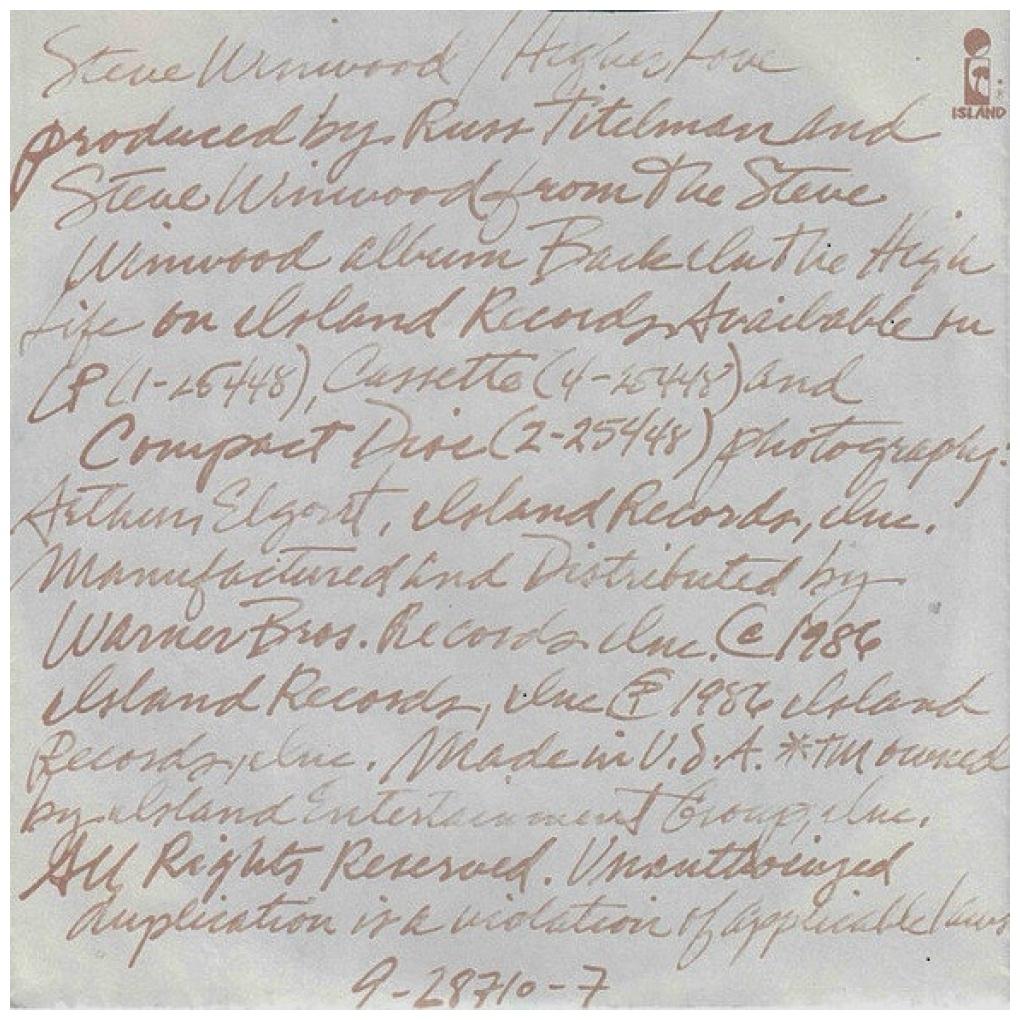 Steve Winwood / Higher Love
ISLAND
produced by Russ Titelman and
Steve Winwood from The Steve
Winwood album Back In The High
Life on Island Records. Available on
LP (1-25448), Cassette (4-25448) and
Compact Disc (2-25448) photography:
Arthur Elgort, Island Records, Inc.
Manufactured and Distributed by
Warner Bros. Records Inc. © 1986
Island Records, Inc ℗ 1986 Island
Records, Inc. Made in U.S.A. *TM owned
by Island Entertainment Group, Inc.
All Rights Reserved. Unauthorized
duplication is a violation of applicable laws
9-28710-7